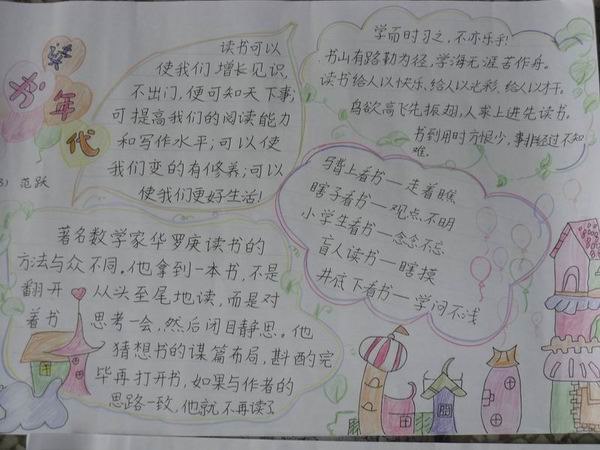 读书年代
3) 范跃
读书可以
使我们增长见识,
不出门,便可知天下事;
可提高我们的阅读能力
和写作水平;可以使
我们变的有修养;可以
使我们更好生活!
学而时习之,不亦乐乎!
书山有路勤为径,学海无涯苦作舟。
读书给人以快乐、给人以光彩、给人以才干。
鸟欲高飞先振翅,人求上进先读书。
书到用时方恨少,事非经过不知
难。
马背上看书—走着瞧
瞎子看书—观点不明
小学生看书—念念不忘
盲人读书—瞎摸
井底下看书—学问不浅
著名数学家华罗庚读书的
方法与众不同。他拿到一本书,不是
翻开 从头至尾地读,而是对
着书 思考一会,然后闭目静思。他
猜想书的谋篇布局,斟酌完
毕再打开书,如果与作者的
思路一致,他就不再读了